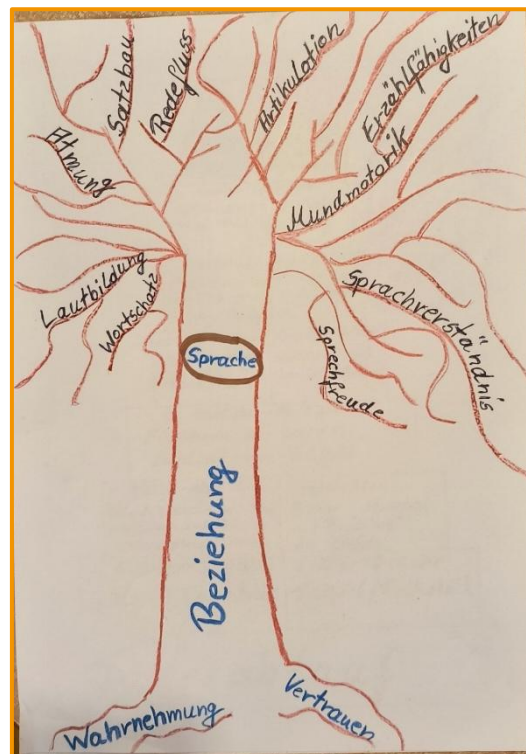 Satzbau
Redefluss
Artikulation
Erzählfähigkeiten
Atmung
Mundmotorik
Lautbildung
Wortschatz
Sprachverständnis
Sprechfreude
Sprache
Beziehung
Wahrnehmung
Vertrauen